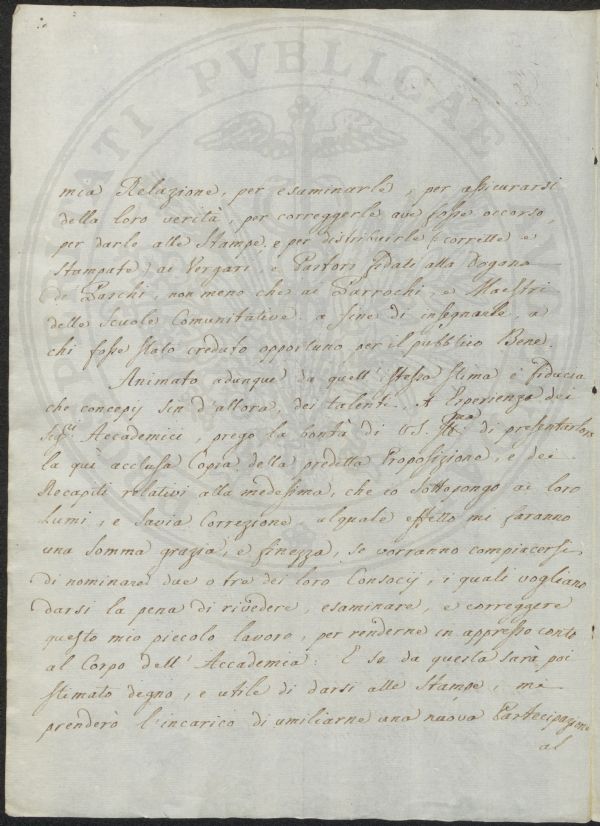 mia Relazione, per esaminarle, per assicurarsi
della loro verità, per correggerle ave fosse occorso,
per darle alle Stampe, e per distribuirle (corrette e
stampate) ai Vergari e Pastori fidati alla Dogana
di Paschi, non meno che ai Parrochi, e Maestri
delle Scuole Comunitative a fine di insegnarle, a
chi fosse stato creduto opportuno per il pubblico Bene.
Animato adunque da quell' istessa stima e fiducia
che concepy sin d'allora, dei talenti, e Esperienza dei
Sig.ri Accademici, prego la bontà di VS. Ill.ma di presentar loro
la quì acclusa Copia della predetta Proposizione, e dei
Recapiti relativi alla medesima, che io sottopongo ai loro
Lumi, e Savia Correzione, alquale effetto mi faranno
una somma grazia, e finezza, se vorranno compiacersi
di nominare due o tre dei loro Consocij, i quali vogliano
darsi la pena di rivedere, esaminare, e correggere
questo mio piccolo lavoro, per renderne in appresso conto
al Corpo dell' Accademia: E se da questa sarà poi
stimato degno, e utile di darsi alle Stampe, mi
prenderò l'incarico di umiliarne una nuova Partecipazione
al